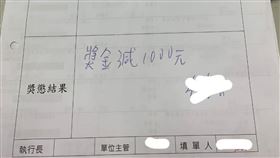 獎金減1000元
獎懲結果
執行長 單位主管 填單人